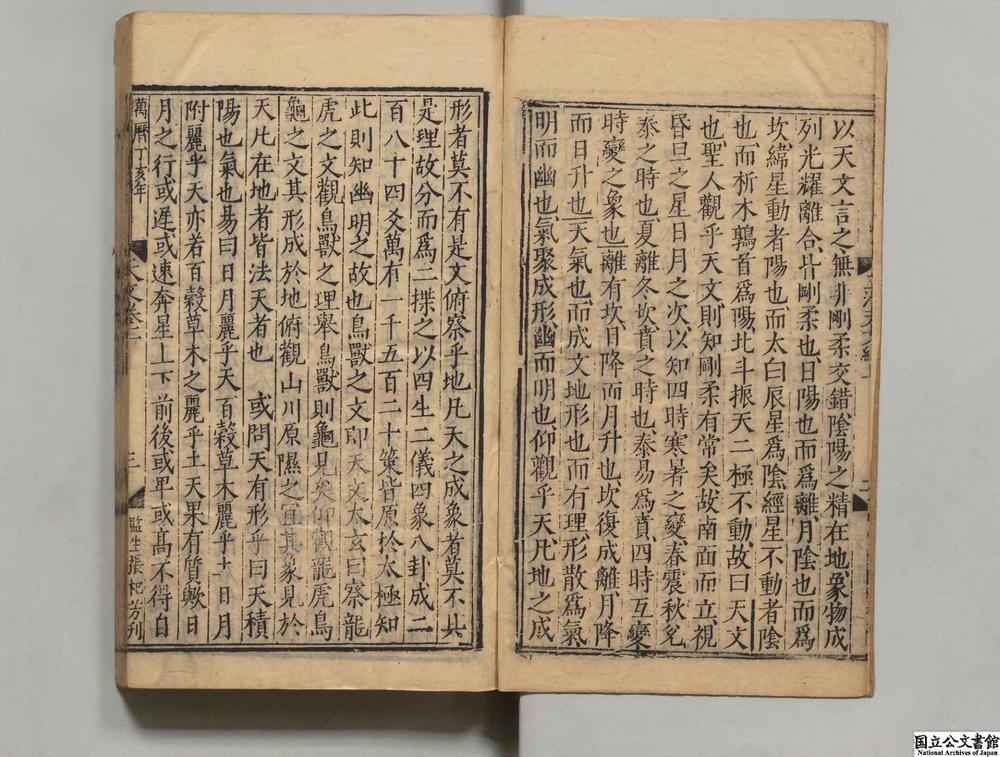 以天文言之無非剛柔交錯陰陽之精在地象物成
列光耀離合皆剛柔也日陽也而爲離月陰也而爲
坎緯星動者陽也而太白辰星爲陰經星不動者陰
也而析木鶉首爲陽北斗振天二極不動故曰天文
也聖人觀乎天文則知剛柔有常矣故南面而立視
昏旦之星日月之次以知四時寒暑之變春震秋兌
泰之時也夏離冬坎賁之時也泰易爲賁四時互變
時變之象也離有坎日降而月升也坎復成離月降
而日升也天氣也而成文地形也而有理形散爲氣
明而幽也氣聚成形幽而明也仰觀乎天凡地之成
形者莫不有是文俯察乎地凡天之成象者莫不具
是理故分而爲二揲之以四生二儀四象八卦成二
百八十四爻萬有一千五百二十策皆原於太極知
此則知幽明之故也鳥獸之文卽天文太玄曰察龍
虎之文觀鳥獸之理舉鳥獸則龜見矣仰觀龍虎鳥
龜之文其形成於地俯觀山川原隰之宜其象見於
天凡在地者皆法天者也 或問天有形乎曰天積
陽也氣也易曰日月麗乎天百穀草木麗乎土日月
附麗乎天亦若百穀草木之麗乎土天果有質歟日
月之行或遲或速奔星上下前後或卑或高不得自
萬曆丁亥年
三
監生張杞芳刊